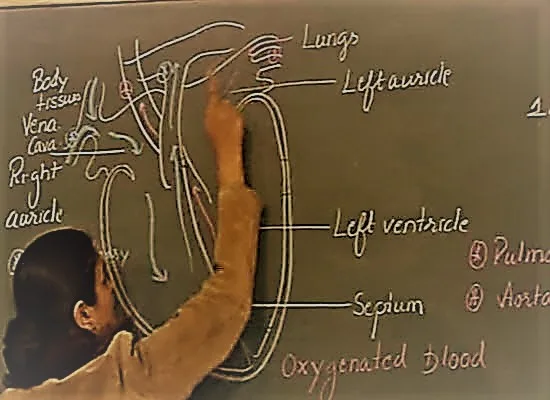 Lungs
Left auricle
Body
tissues
Vena
Cava
Right
auricle
1.
Left ventricle
Septum
Oxygenated blood